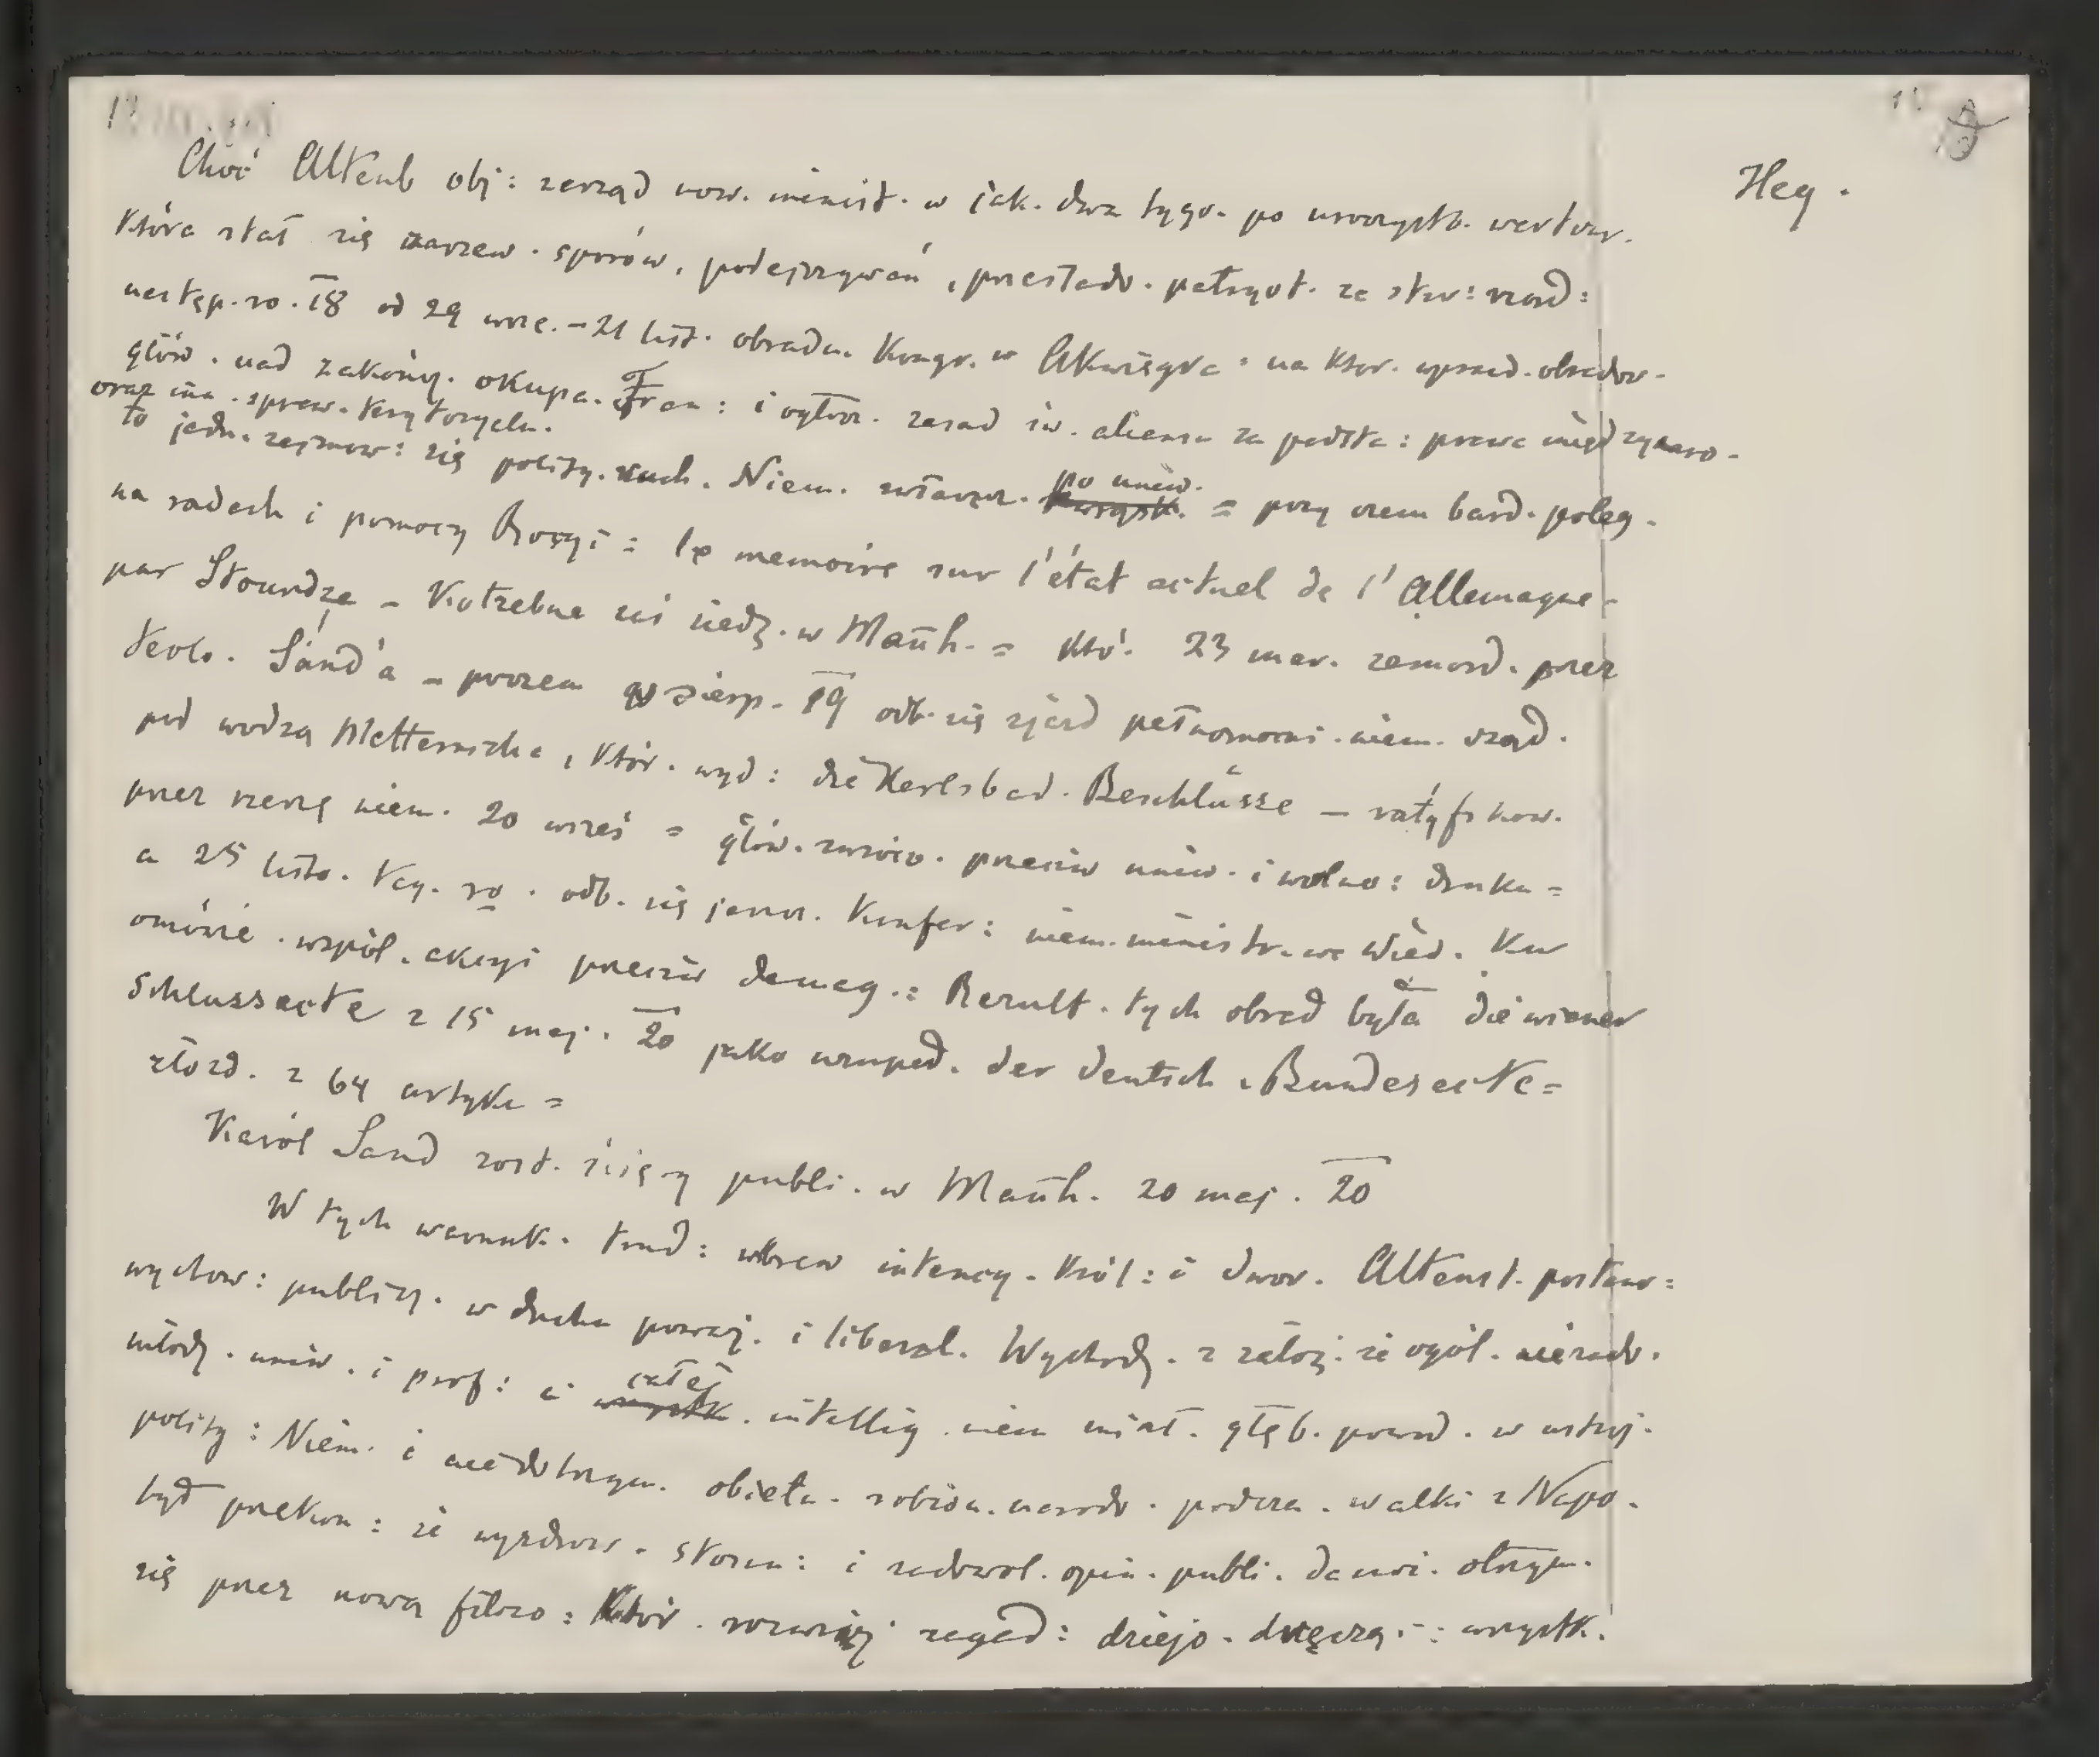 Heg.
Choć Altenb obj: zarząd now. minist. w jak. dwa tygo. po uroczystb. wartbur.
która stał się zarzew. sporów, podejrzywań, prześladv. patryot. ze str: rząd:
następ. ro. 18 od 29 wrze. – 21 list. obradu. Kongr. w Akwisgra: na któr. wpraw. obradow.
głów. nad zakończ. okupa. Fran: i wytwor. zasad św. aliansu za podsta: prawa międzynaro.
oraz inn. spraw. terytoryeln.
to jedn. zajmow: się polity. ruch. Niem. zwłaszcz. po uniw. = przy czem bard. poleg.
na radach i pomocy Rosyi = le memoire sur l'état actuel de l'Allemagne –
par Stourdza – Kotzebue zaś siedz. w Mañh. = któ. 23 mar. zamord. przez
teolo. Sand'a – poczem w sierp. 19 odb. się zjazd pełnomocni. niem. rząd.
pod wodzą Metternicha, któr. wyd: die Karlsbad. Beschlüsse – ratyfikow.
przez rzeszę niem. 20 wrześ = głów. zwróco. przeciw uniw. i wolno: druku =
a 25 listo. teg. ro. odb. się ponow. Konfer: niem. ministr. we Wied. Ku
omówie. wspól. akcyi przeciw demag.: Rezult. tych obrad była die wiener
Schlussacte z 15 maj. 20 jako uzuped. der deutsch. Bundesacte =
złożo. z 64 artyku =
Karól Sand zost. ścięty publi. w Mañh. 20 maj. 20
W tych warunk. trud: wbrew intency. Król: i dwor. Altenst. postaw:
wychow: publicz. w duchu poważ. i liberal. Wychodz. z założ. że ogól. niezado.
młodz. uniw. i prof: i całej intellig. niem miał. głęb. powod. w ustroj.
polity: Niem. i niedotrzym. obietn. robion. narodo. podcza. walki z Napo.
był przekon: że uzdrow. stosun: i zadowol. opin. publi. da uni. otrzym.
się przez nową filozo: któr. rozwiąż zagad: dziejo. dręczą.: wszystk.